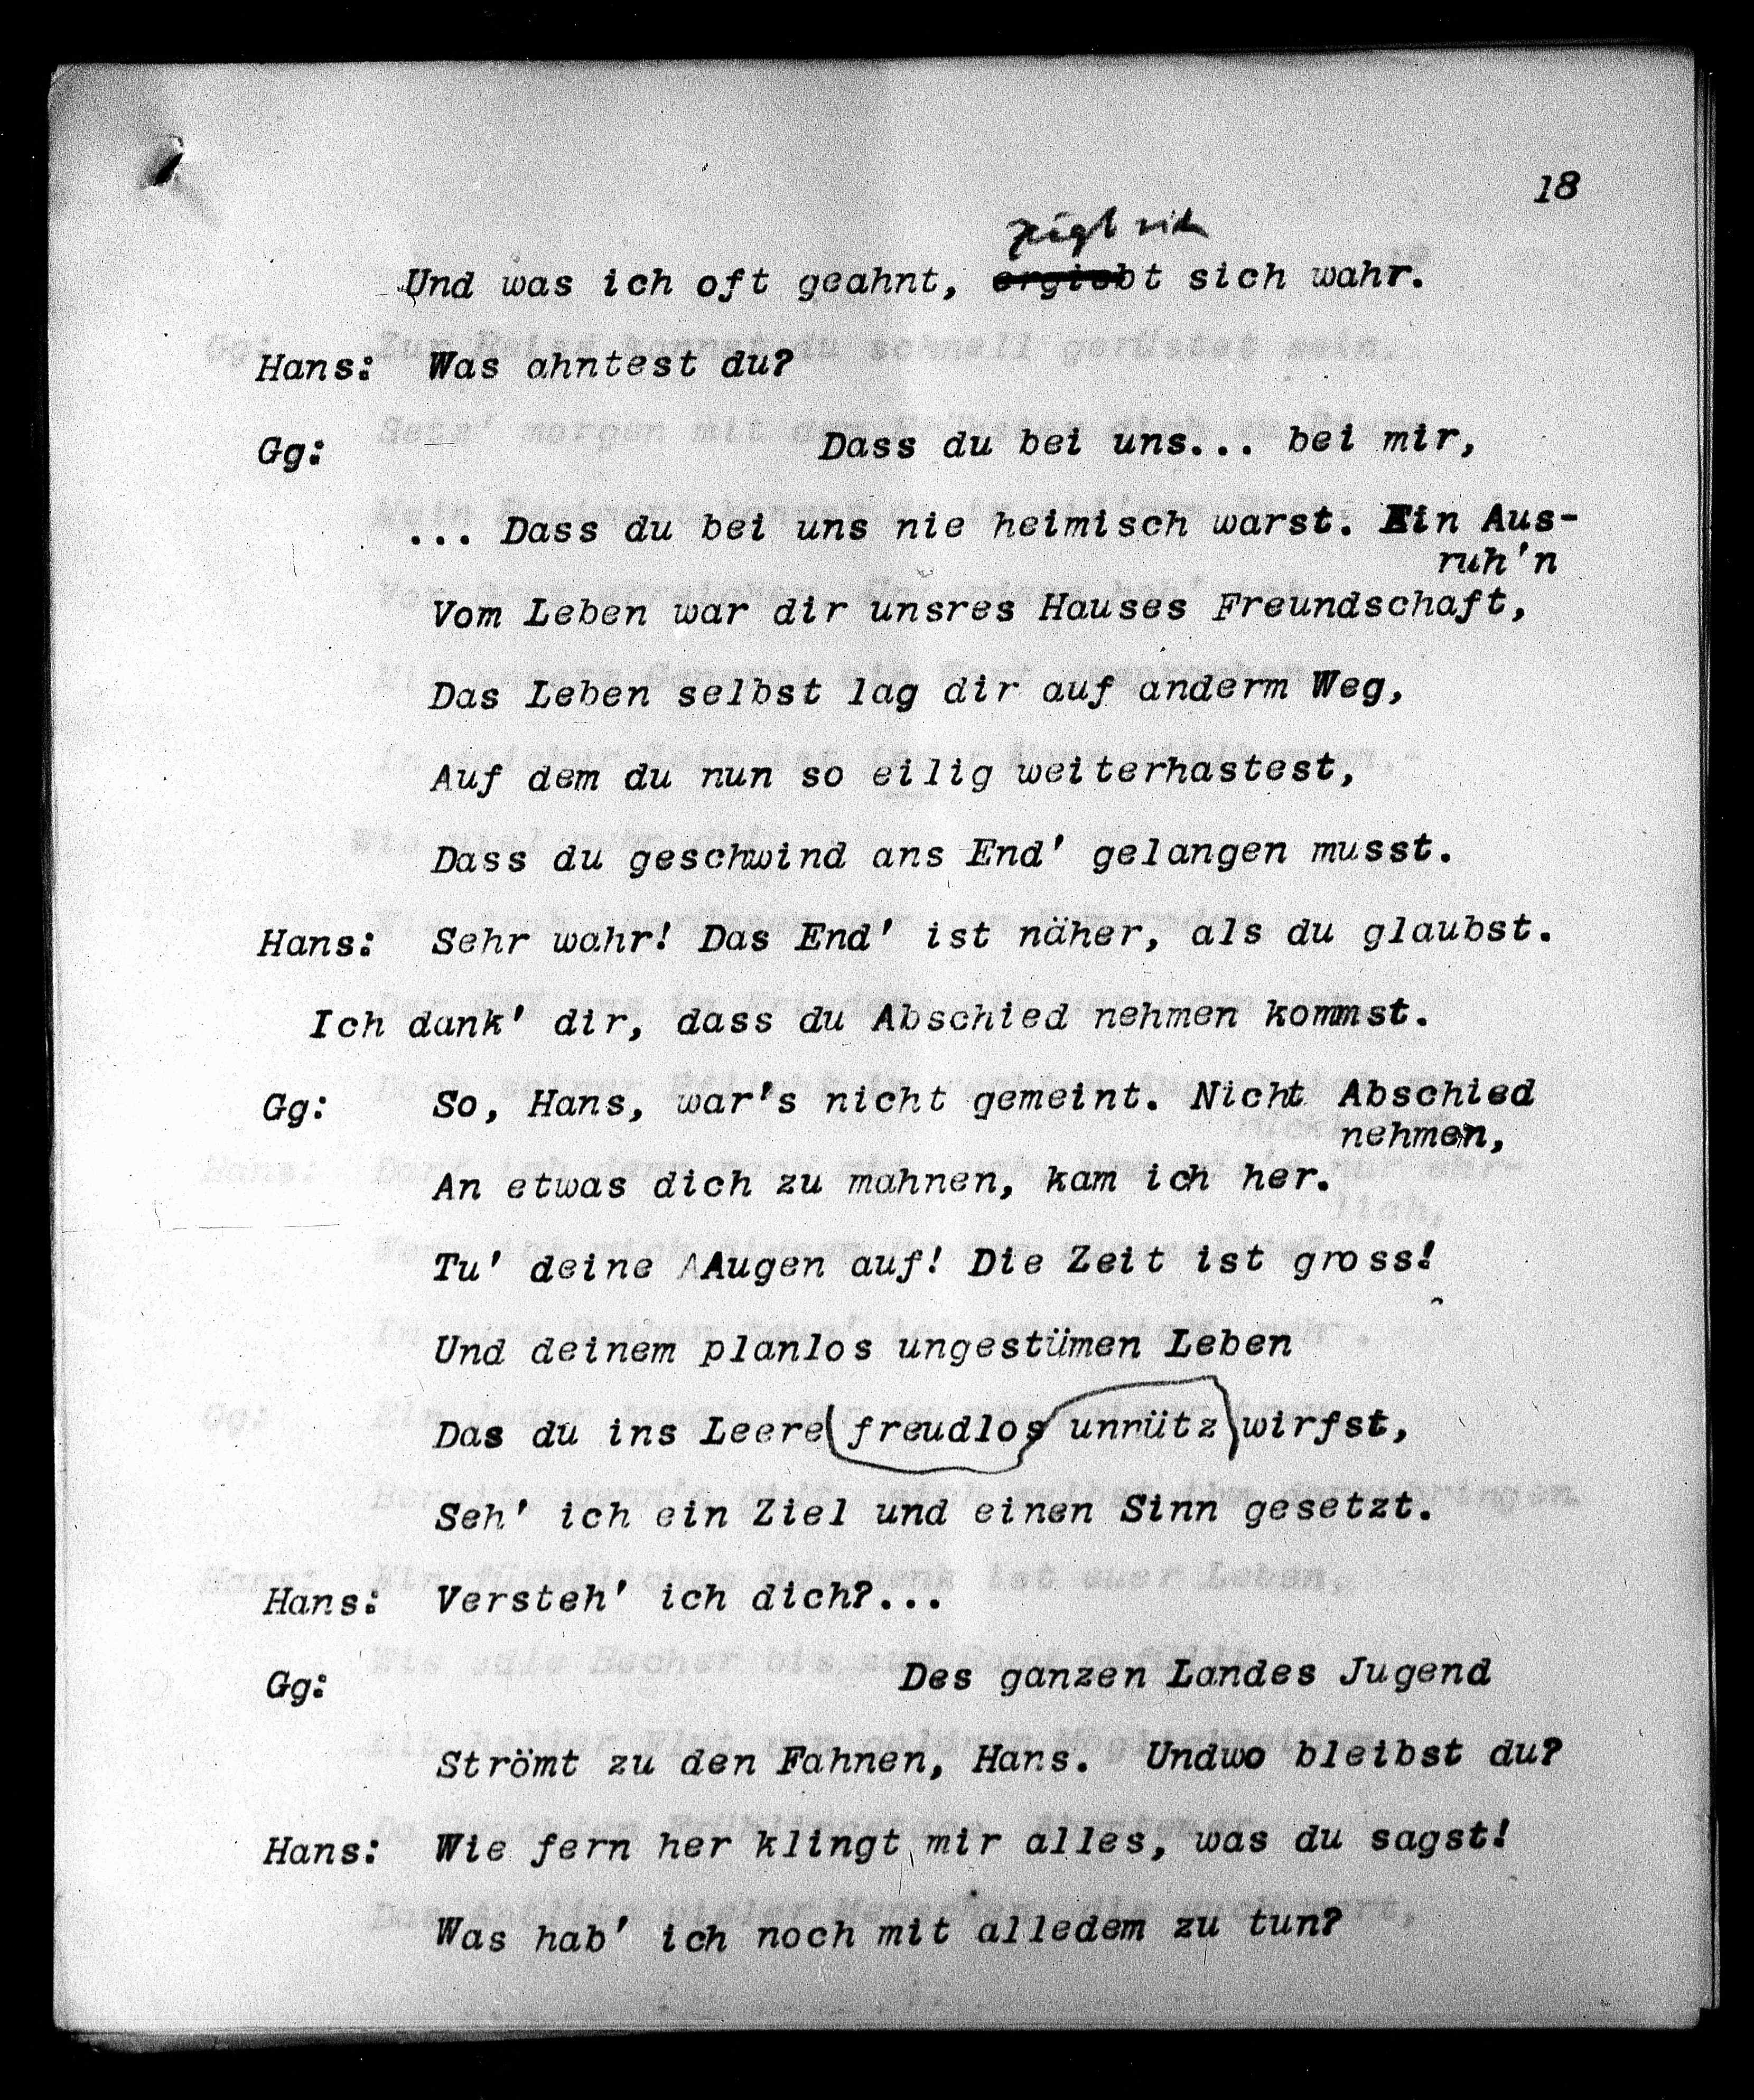 18
zeigt sich
Und was ich oft geahnt, ergiebt sich wahr.
Hans: Was ahntest du?
Gg: Dass du bei uns... bei mir,
... Dass du bei uns nie heimisch warst. Ein Aus-
ruh'n
Vom Leben war dir unsres Hauses Freundschaft,
Das Leben selbst lag dir auf anderm Weg,
Auf dem du nun so eilig weiterhastest,
Dass du geschwind ans End' gelangen musst.
Hans: Sehr wahr! Das End' ist näher, als du glaubst.
Ich dank' dir, dass du Abschied nehmen kommst.
Gg: So, Hans, war's nicht gemeint. Nicht Abschied
nehmen,
An etwas dich zu mahnen, kam ich her.
Tu' deine AAugen auf! Die Zeit ist gross!
Und deinem planlos ungestümen Leben
Das du ins Leere freudlos unnütz wirfst,
Seh' ich ein Ziel und einen Sinn gesetzt.
Hans: Versteh' ich dich?...
Gg: Des ganzen Landes Jugend
Strömt zu den Fahnen, Hans. Undwo bleibst du?
Hans: Wie fern her klingt mir alles, was du sagst!
Was hab' ich noch mit alledem zu tun?